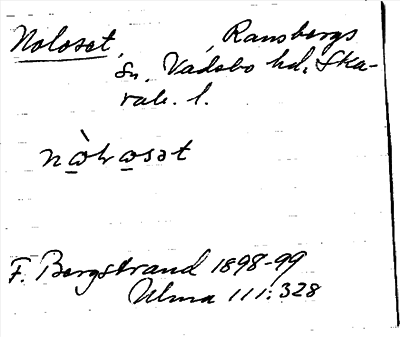 Noloset, Ransbergs
Sn. Vadsbo hd, Ska-
rab. l.
F. Bergstrand 1898-99
Ulma 111:328